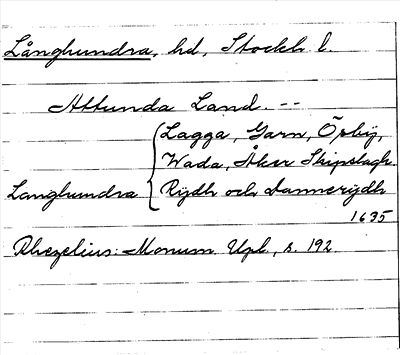 Långhundra, hd, Stockh. l.
Attunda Land. --
Lagga, Garn, Öpby,
Wada, Åker Skipslagh.
Langhundra Rydh och Dannerydh
1635
Rhezelius: Monum. Upl., s. 192.